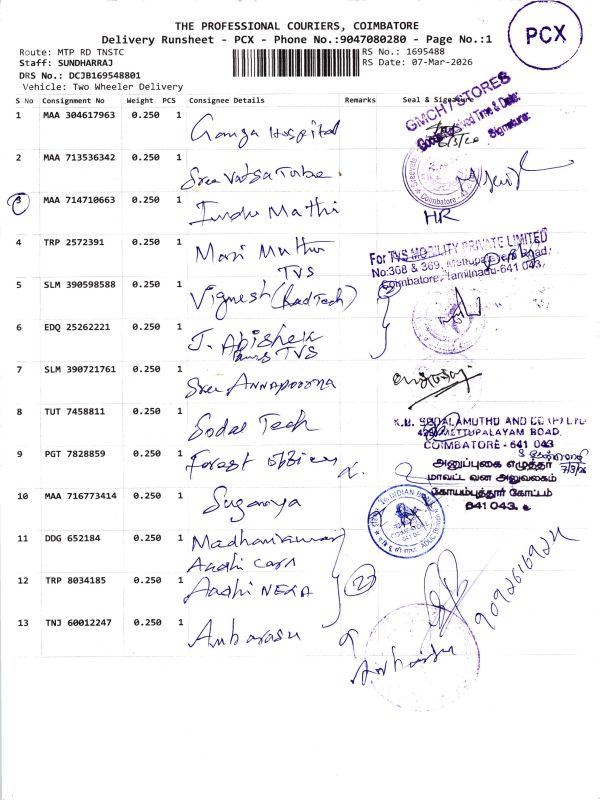 THE PROFESSIONAL COURIERS, COIMBATORE
Delivery Runsheet - PCX - Phone No.:9047080280 - Page No.:1
PCX
Route: MTP RD TNSTC
RS No.: 1695488
Staff: SUNDHARRAJ
RS Date: 07-Mar-2026
DRS No.: DCJB169548801
Vehicle: Two Wheeler Delivery
S No Consignment No Weight PCS Consignee Details Remarks Seal & Signature
GMCH / STORES
1 MAA 304617963 0.250 1 Ganga Hospital
2 MAA 713536342 0.250 1 Sree Vatsa Tube
Coimbatore
3 MAA 714710663 0.250 1 Indu Mathi
HR
4 TRP 2572391 0.250 1 Mari Muthu
TVS
For TVS MOBILITY PRIVATE LIMITED
No:368 & 369, Mettupalayam Road,
Coimbatore, Tamilnadu-641 043.
5 SLM 390598588 0.250 1 Vignesh
6 EDQ 25262221 0.250 1 J. Abishek
TVS
7 SLM 390721761 0.250 1 Sree Annapoorna
8 TUT 7458811 0.250 1 Sodal Tech
AND CO (P) LTD
METTUPALAYAM ROAD,
COIMBATORE - 641 043
9 PGT 7828859 0.250 1 Forest office
அனுப்புகை எழுத்தர்
மாவட்ட வன அலுவலகம்
கோயம்புத்தூர் கோட்டம்
641 043.
7/3/26
10 MAA 716773414 0.250 1 Suganya
INDIAN BANK
11 DDG 652184 0.250 1 Madhankumar
Aadhi Cars
12 TRP 8034185 0.250 1 Aadhi NEXA
2
9092616924
13 TNJ 60012247 0.250 1 Anbarasu